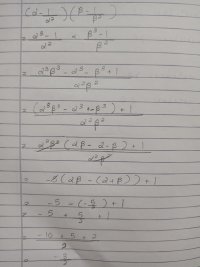 (α - 1/α²) (β - 1/β²)
= α³ - 1/α² × β³ - 1/β²
= α³β³ - α³ - β³ + 1/α²β²
= (α³β³ - α³ - β³) + 1/α²β²
= α²β² (αβ - α - β) + 1/α²β²
= (αβ - (α + β)) + 1
= -5 - (-5/2) + 1
= -5 + 5/2 + 1
= -10 + 5 + 2/2
= -3/2